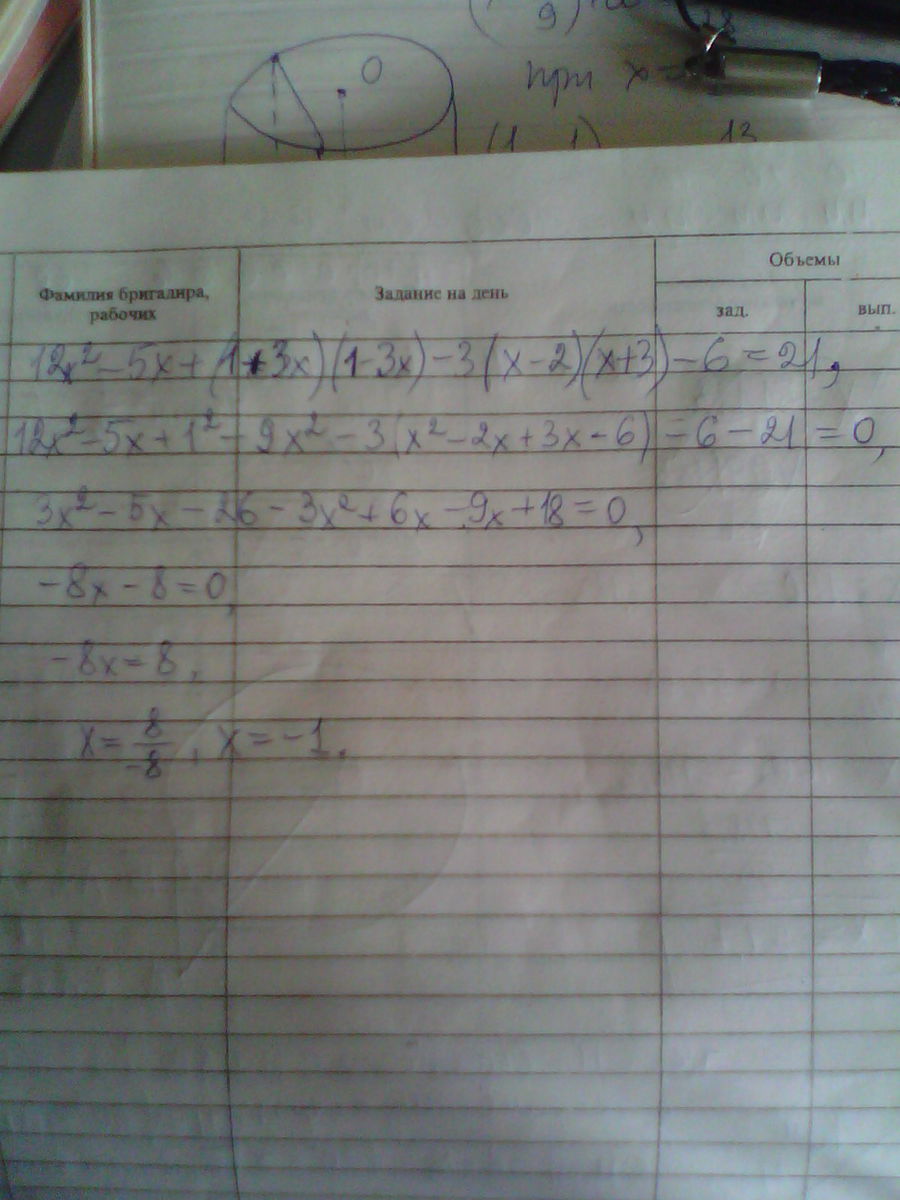 9
18
O
при x=
13
Фамилия бригадира, рабочих
Задание на день
Объемы
зад.
вып.
12x² - 5x + (1+3x)(1-3x) - 3(x-2)(x+3) - 6 = 21,
12x² - 5x + 1² - 9x² - 3(x² - 2x + 3x - 6) - 6 - 21 = 0,
3x² - 5x - 26 - 3x² + 6x - 9x + 18 = 0,
-8x - 8 = 0,
-8x = 8,
x = 8/-8, x = -1.